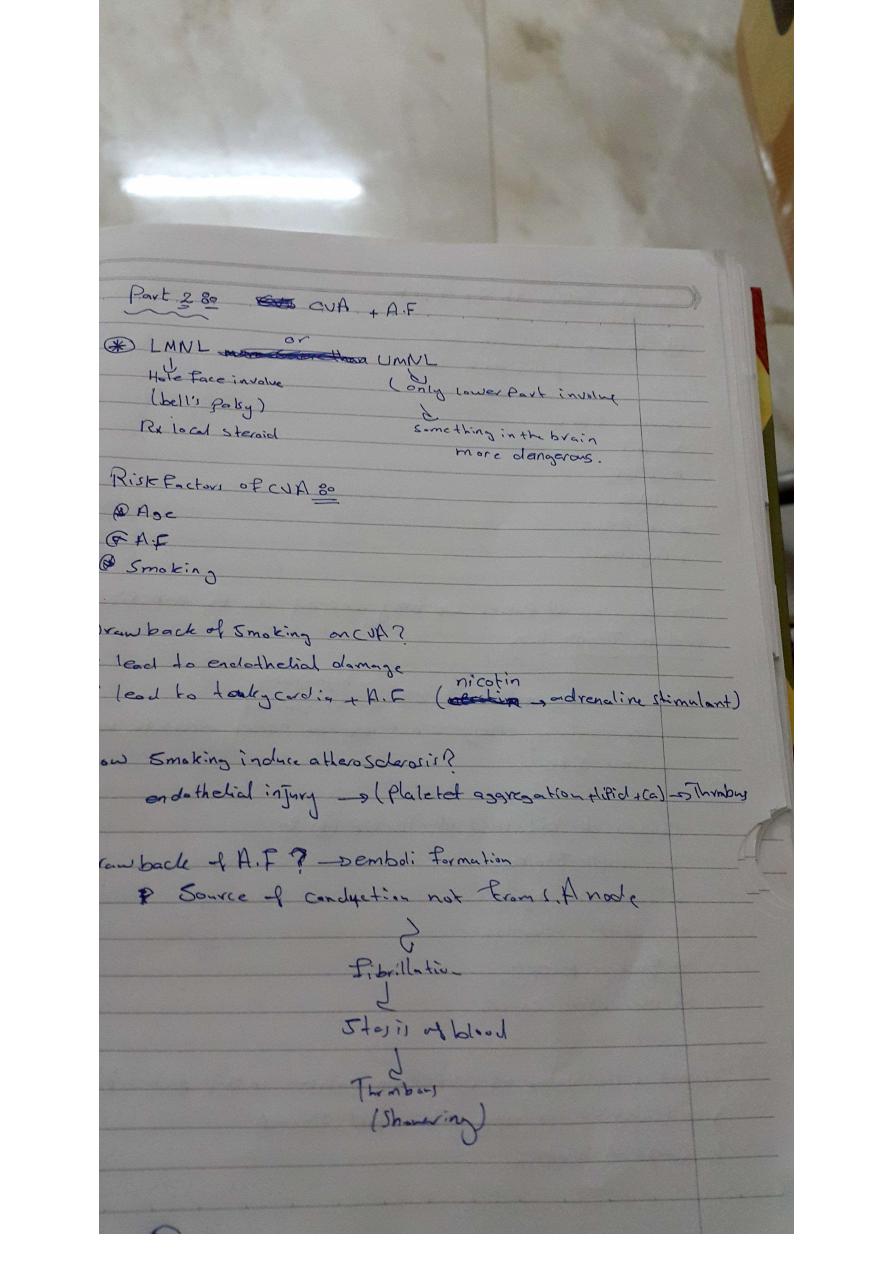 Part 2 :
CVA + A.F
LMNL or UMNL
Hole face involve
(only lower Part involve
(bell's palsy)
Rx local steroid
something in the brain
more dangerous.
Risk factors of CVA :
Age
A.F
Smoking
rawback of Smoking on CVA?
lead to endothelial damage
lead to + A.F (nicotin → adrenaline stimulant)
ow Smoking induce atherosclerosis?
endothelial injury → (Platelet aggregation + lipid + Ca) →
rawback of A.F ? → emboli formation
Source of conduction not from S.A node
fibrillation
Stasis of blood
(Showering)